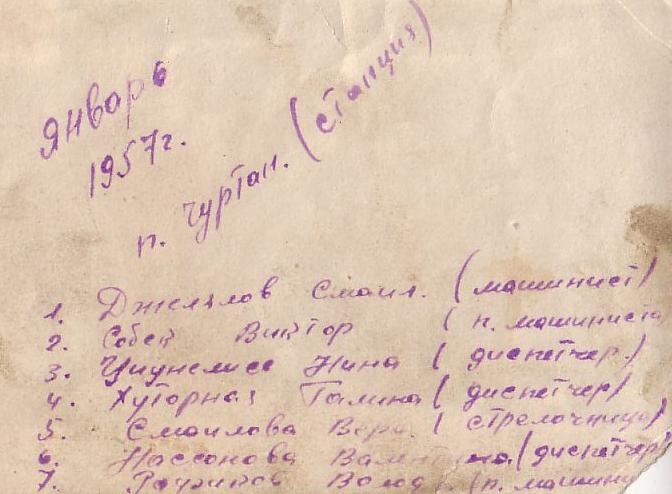 январь
1957г.
п. Чуртан. (станция)
1. Джелялов Смаил. (машинист)
2. Собец Виктор (п. машиниста
3. Нина (диспетчер.)
4. Хуторная Галина (диспетчер)
5. Смаилова Вера. (стрелочница)
6. Нассонова Валентина. (диспетчер)
7. Володя (п. машини